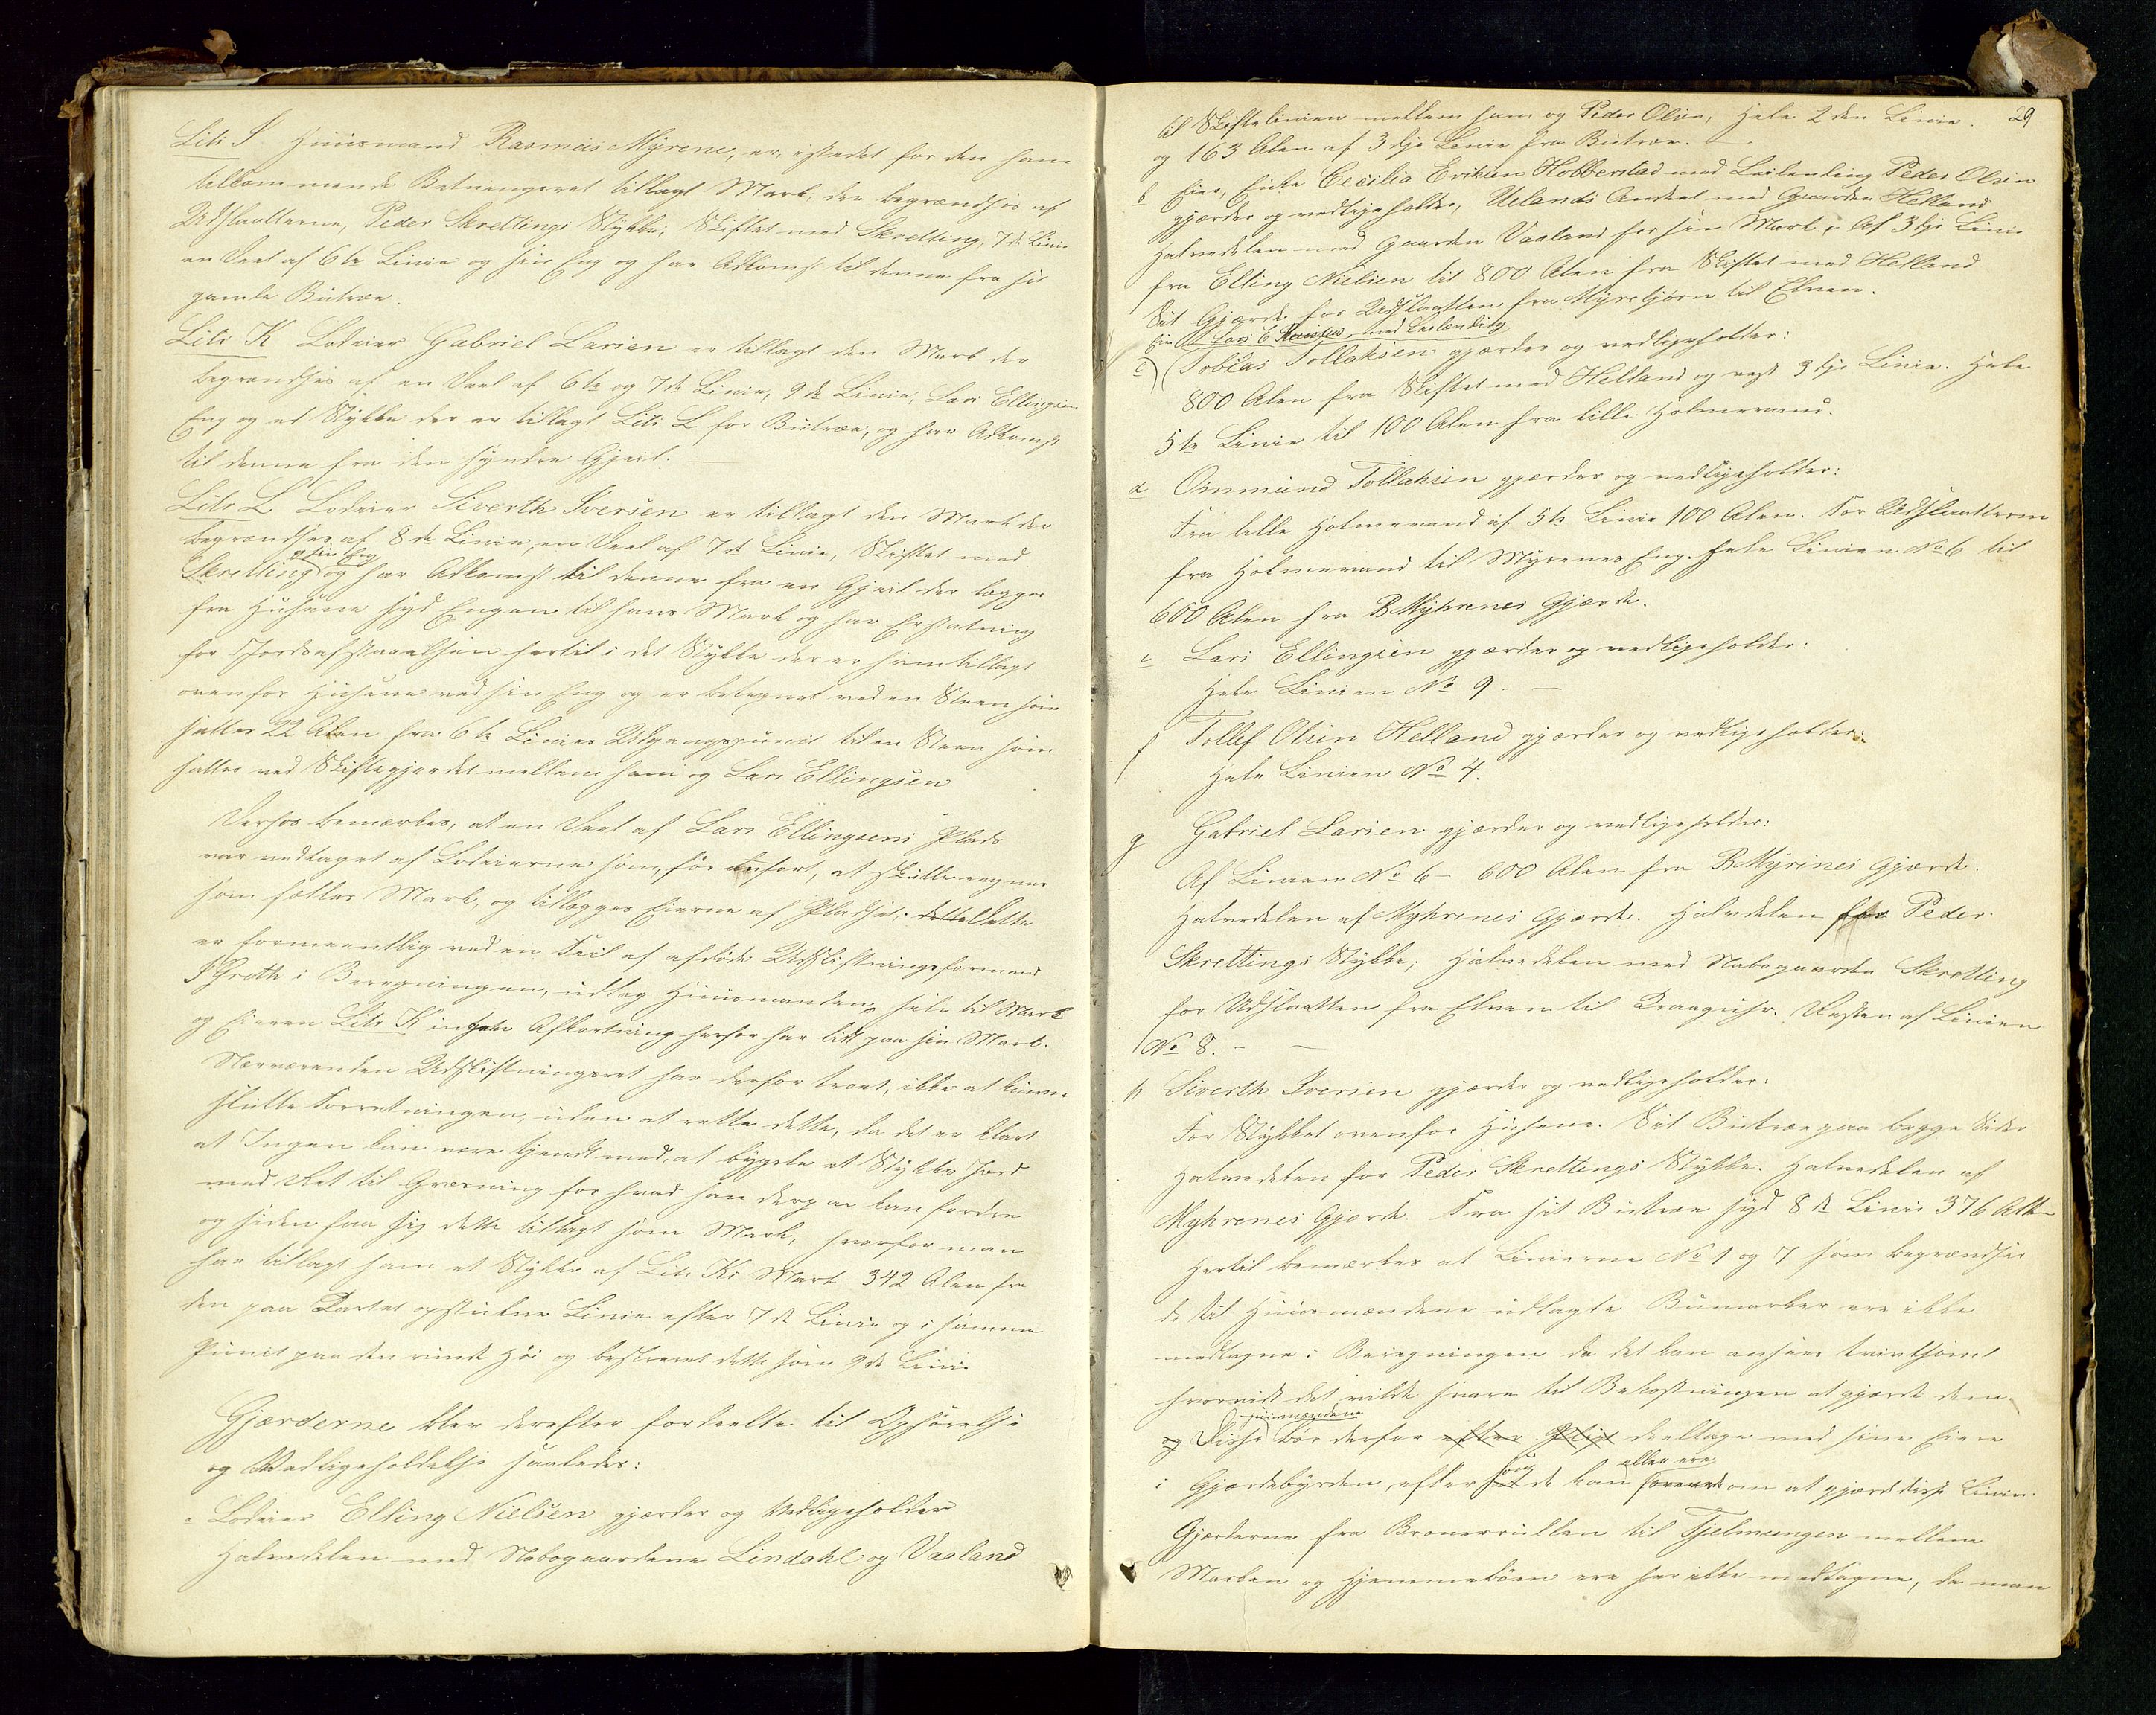 Litr I Huusmand Rasmus Myrene, er, istedet for den ham
tilkommende Betvangsret tillagt Mark, der begrændses af
Udslaatterne, Peder Skrettings Stykke, Skiftet med Skretting, 7de Linie
en Deel af 6te Linie og sin Eng og har Adkomst til denne fra sit
gamle Butræe.
Litr K Lodeier Gabriel Larsen er tillagt den Mark der
begrændses af en Deel af 6te og 7de Linie, 9de Linie, Lars Ellingsen
Eng og et Stykke der er tillagt Litr L for Butræe, og har Adkomst
til denne fra den søndre Gjeil.
Litr L Lodeier Siverth Iversen er tillagt den Mark der
begrændses af 8de Linie, en Deel af 7de Linie, Skiftet med
og sin Eng
Skretting og har Adkomst til denne fra en Gjeil der lægges
fra Husene syd Engen til hans Mark og har Erstatning
for Jordafstaaelsen hertil i det Stykke der er ham tillagt
ovenfor Husene ved sin Eng og er betegnet ved en Steen som
sættes 22 Alen fra 6te Linies Udgangspunct til en Steen som
sættes ved Skiftegjerdet mellem ham og Lars Ellingsen
Derhos bemærkes, at en Deel af Lars Ellingsens Plads
var vedtaget af Lodeierne som, før anført, at skulle regnes
som fælles Mark, og tillægges Eierne af Pladset; dette Dette
er formeentlig ved en Feil af afdøde Udskiftningsformand
I Groth i Beregningen, udlag Huusmanden, hele til Mark
og Eieren Litr K ingen Afkortning herfor har lidt paa sin Mark.
Nærværenden Udskiftningsret har derfor troet, ikke at kunne
slutte Forretningen, uden at rette dette, da det er klart
at Ingen kan være tjendt med, at bygsle et Stykke Jord
med Ret til Græsning for hvad han derpaa kan fordre
og siden faa sig dette tillagt som Mark, hvorfor man
har tillagt ham et Stykke af Litr Ks Mark 342 Alen fra
den paa Kartet opstukne Linie efter 7de Linie og i samme
Punct paa den runde Høi og beskrevet dette som 9de Linie
Gjærderne blev derefter fordeelte til Opførelse
og Vedligeholdelse saaledes:
a Lodeier Elling Nielsen gjærder og Vedligeholder
Halvedelen med Nabogaardene Lindahl og Vaaland
29
til Skiftelinien mellem ham og Peder Olsen, hele 2den Linie.
og 163 Alen af 3die Linie fra Butræe.
b Eier, Enke Cecilia Eriksen Hobberstad med Leilending Peder Olsen
gjærder og vedligeholder, Uelands Andeel med Gaarden Helland
Halvedelen med Gaarden Vaaland for sin Mark, Af 3die Linie
fra Elling Nielsen til 800 Alen fra Skiftet med Helland
Sit Gjærde for Udslaatten fra Myrebjørn til Elven.
Eier Lars E med Leilending
c) Tobias Tollaksen gjærder og vedligeholder:
800 Alen fra Skiftet med Helland og vest 3die Linie. Hele
5te Linie til 100 Alen fra lille Holmevand.
d Osmund Tollaksen gjærder og vedligeholder:
Fra lille Holmevand af 5te Linie 100 Alen. For Udslaatterne
fra Holmevand til Myrenes Eng. Hele Linien No 6 til
600 Alen fra R Myhrenes Gjærde.
e Lars Ellingsen gjærder og vedligeholder:
Hele Linien No 9. —
f Tollef Olsen Helland gjærder og vedligeholder:
Hele Linien No 4.
g Gabriel Larsen gjærder og vedligeholder:
Af Linien No 6 – 600 Alen fra R Myrenes Gjærde.
Halvedelen af Myhrenes Gjærde. Halvedelen for Peder
Skrettings Stykke; Halvedelen med Nabogaarden Skretting
for Udslaatten fra Elven til . Resten af Linien
No 8. –
h Siverth Iversen gjærder og vedligeholder:
For Stykket ovenfor Husene. Sit Butræe paa begge Sider
Halvedelen for Peder Skrettings Stykke. Halvedelen af
Myhrenes Gjærde. Fra sit Butræe syd 8de Linie 376 Alen
Hertil bemærkes at Linierne No 1 og 7 som begrændser
de til Huusmændene udlagte Bumarker ere ikke
medtagne i Beregningen da det kan ansees tvivlsomt
hvorvidt det vilde svare til Bekostningen at gjærde dem
Huusmændene
og Disse bør derfor efter deeltage med sine Eiere
som
eller ere
i Gjærdebyrden, efter de kan forenet om at gjærde disse Linier.
Gjærderne fra til Tjelmungen mellem
Marken og Hjemmebøen ere her ikke medtagne, da man